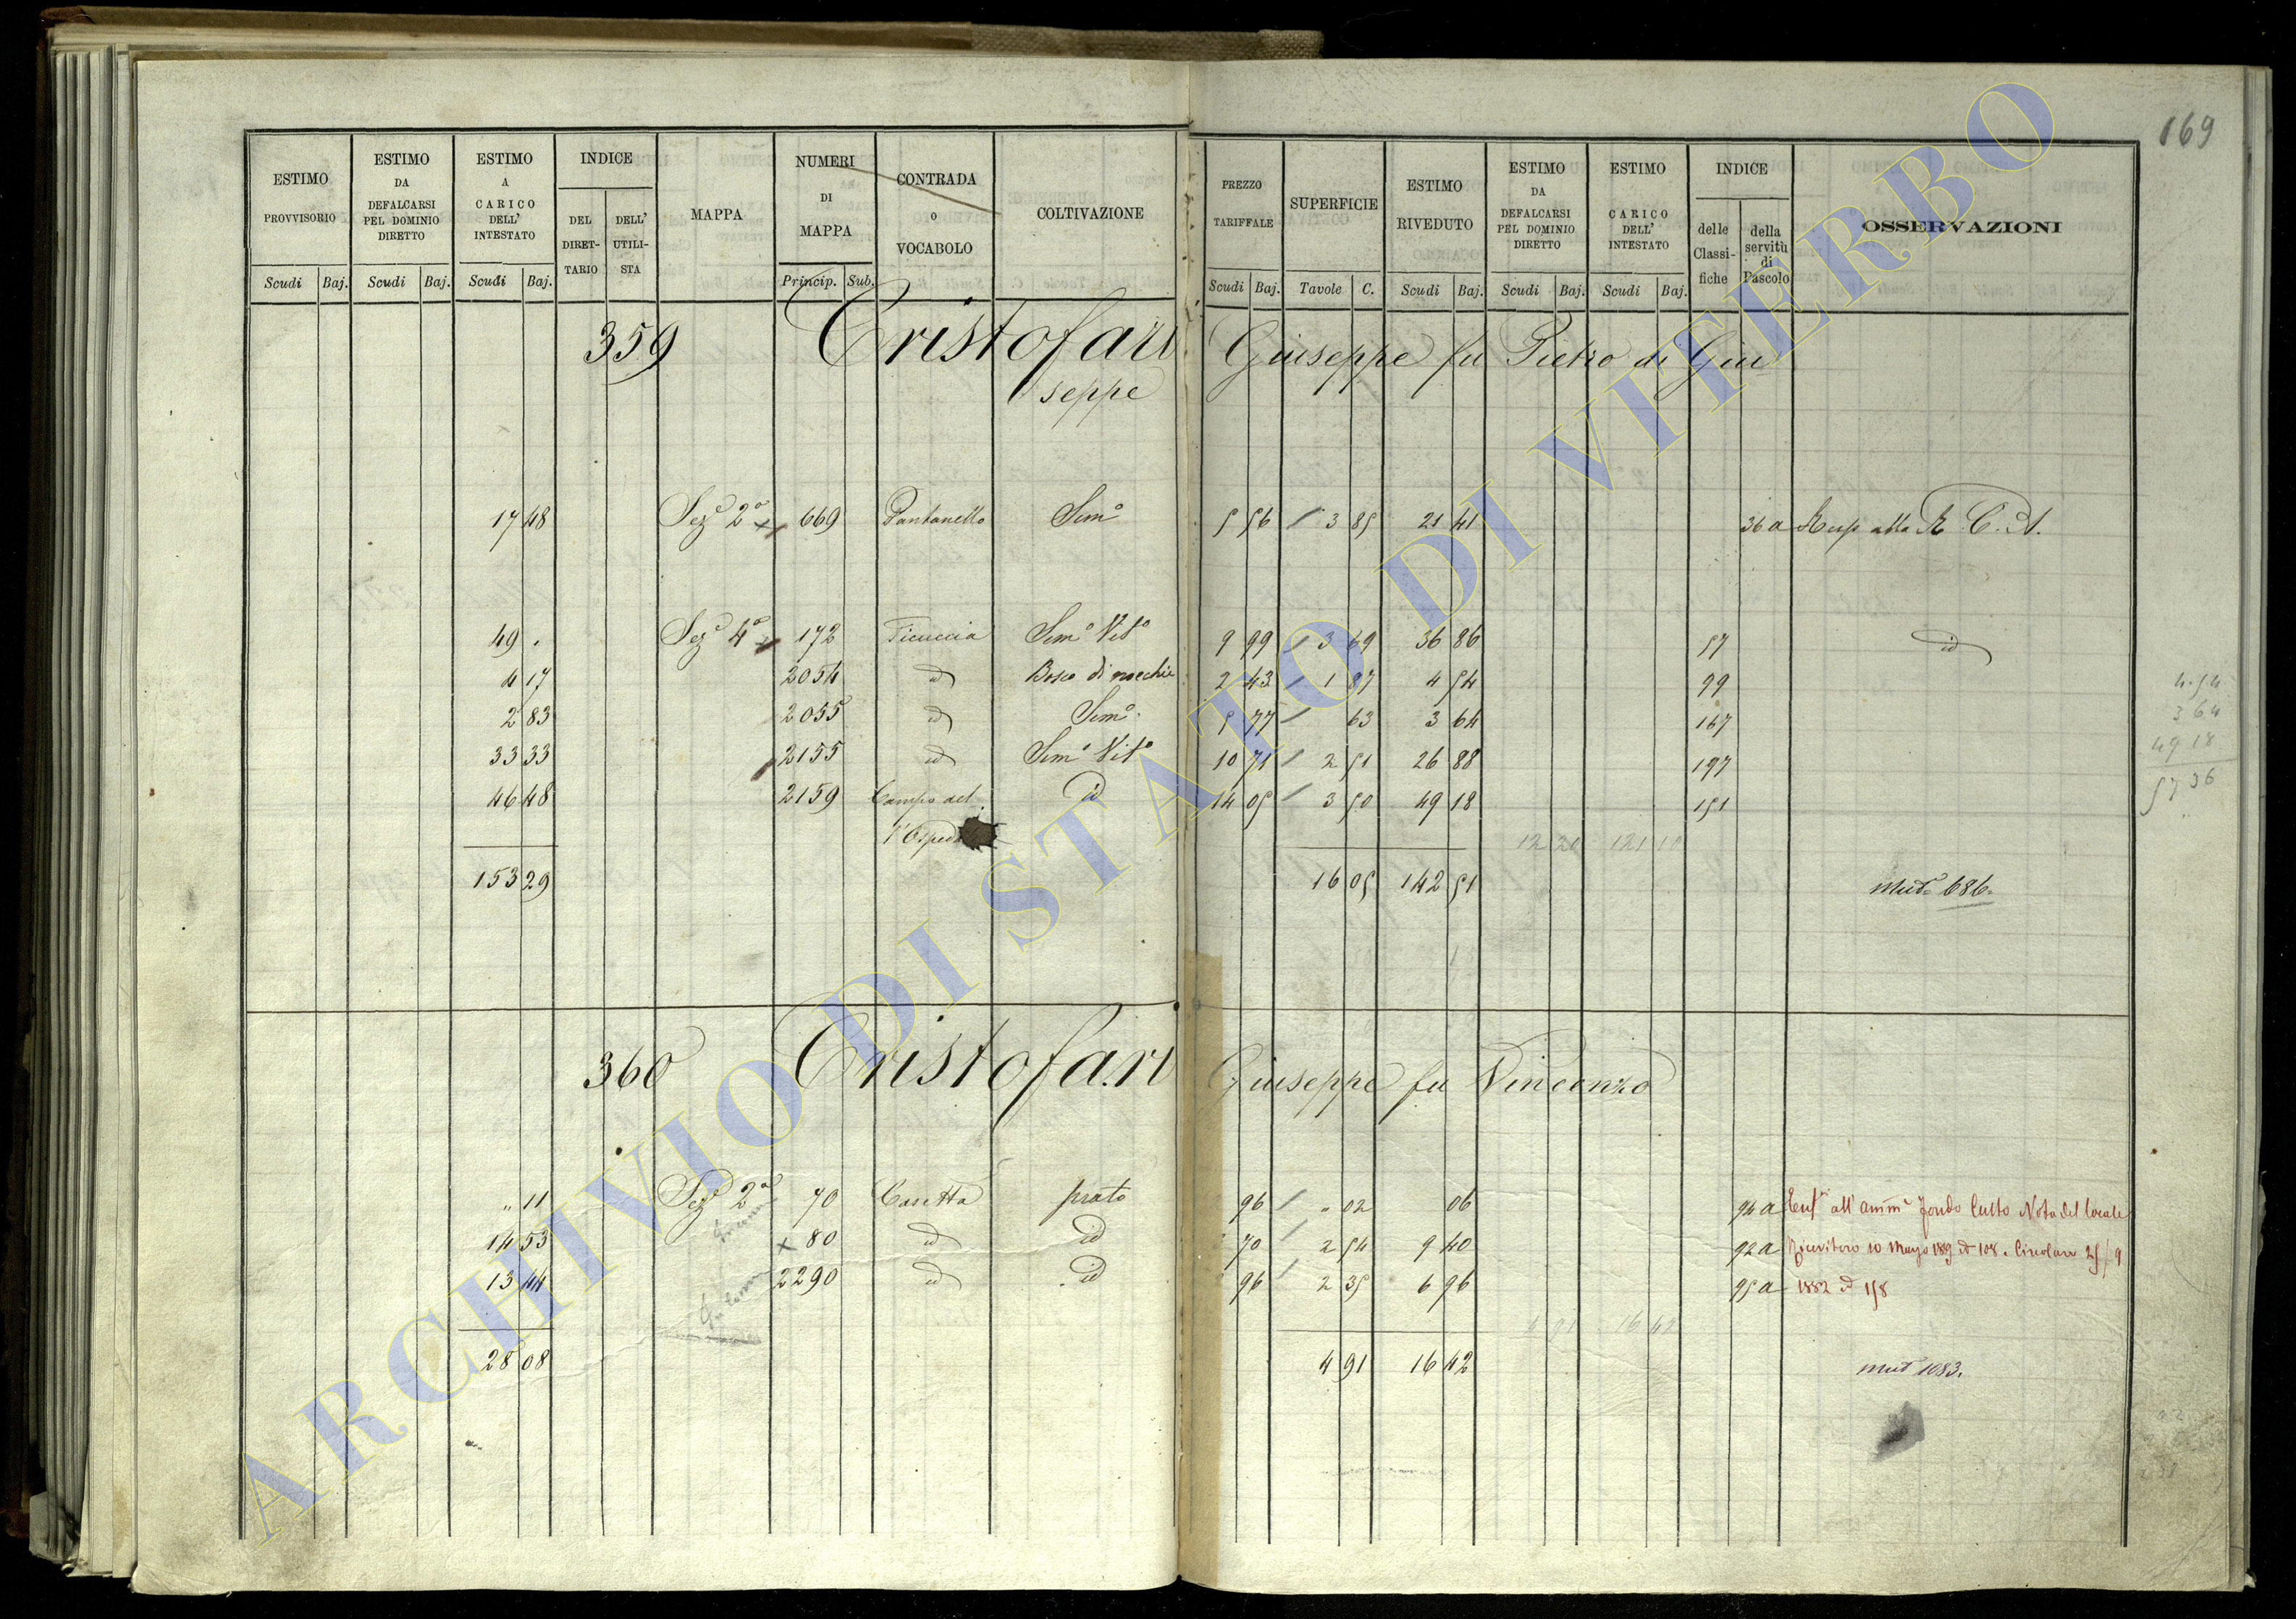 169
ESTIMO PROVVISORIO
ESTIMO DA DEFALCARSI PEL DOMINIO DIRETTO
ESTIMO A CARICO DELL' INTESTATO
INDICE
DEL DIRETTARIO
DELL' UTILISTA
MAPPA
NUMERI DI MAPPA
CONTRADA O VOCABOLO
COLTIVAZIONE
PREZZO TARIFFALE
SUPERFICIE
ESTIMO RIVEDUTO
ESTIMO DA DEFALCARSI PEL DOMINIO DIRETTO
ESTIMO CARICO DELL' INTESTATO
INDICE
delle Classifiche
della servitù di Pascolo
OSSERVAZIONI
Scudi Baj. Scudi Baj. Scudi Baj. Princip. Sub. Scudi Baj. Tavole C. Scudi Baj. Scudi Baj. Scudi Baj.
359 Cristofari Giuseppe fu Pietro di Giu
seppe
17 48 Seze 2a 669 Pantanello Semo 5 56 3 85 21 41 36 a Risp alla R. C. A.
49 . Sezo 4a 172 Ficuccia Semo Vito 9 99 3 69 36 86 57 id
4 17 2054 id Bosco di nocchie 2 43 1 87 4 54 99
2 83 2055 id Semo 5 77 63 3 64 167
33 33 2155 id Semo Vito 10 71 2 51 26 88 197
46 48 2159 Campo del id 14 05 3 50 49 18 151
l'Osped
12 20 121 10
153 29 16 05 142 51 Mut. 686.
4 54
3 64
49 18
57 36
360 Cristofari Giuseppe fu Vincenzo
" 11 Sez 2a 70 Casetta prato 96 " 02 06 94 a all'amm Fondo Culto Nota del locale
14 53 80 id id 70 2 54 9 40 92 a 10 Maggio 189 108. Circolare 25/9
13 44 2290 id id 96 2 35 6 96 95 a 1882 158
4 91 16 42
28 08 4 91 16 42 Mut 1083.
ARCHIVIO DI STATO DI VITERBO